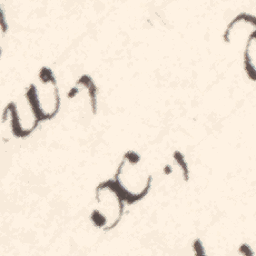 w,
x,